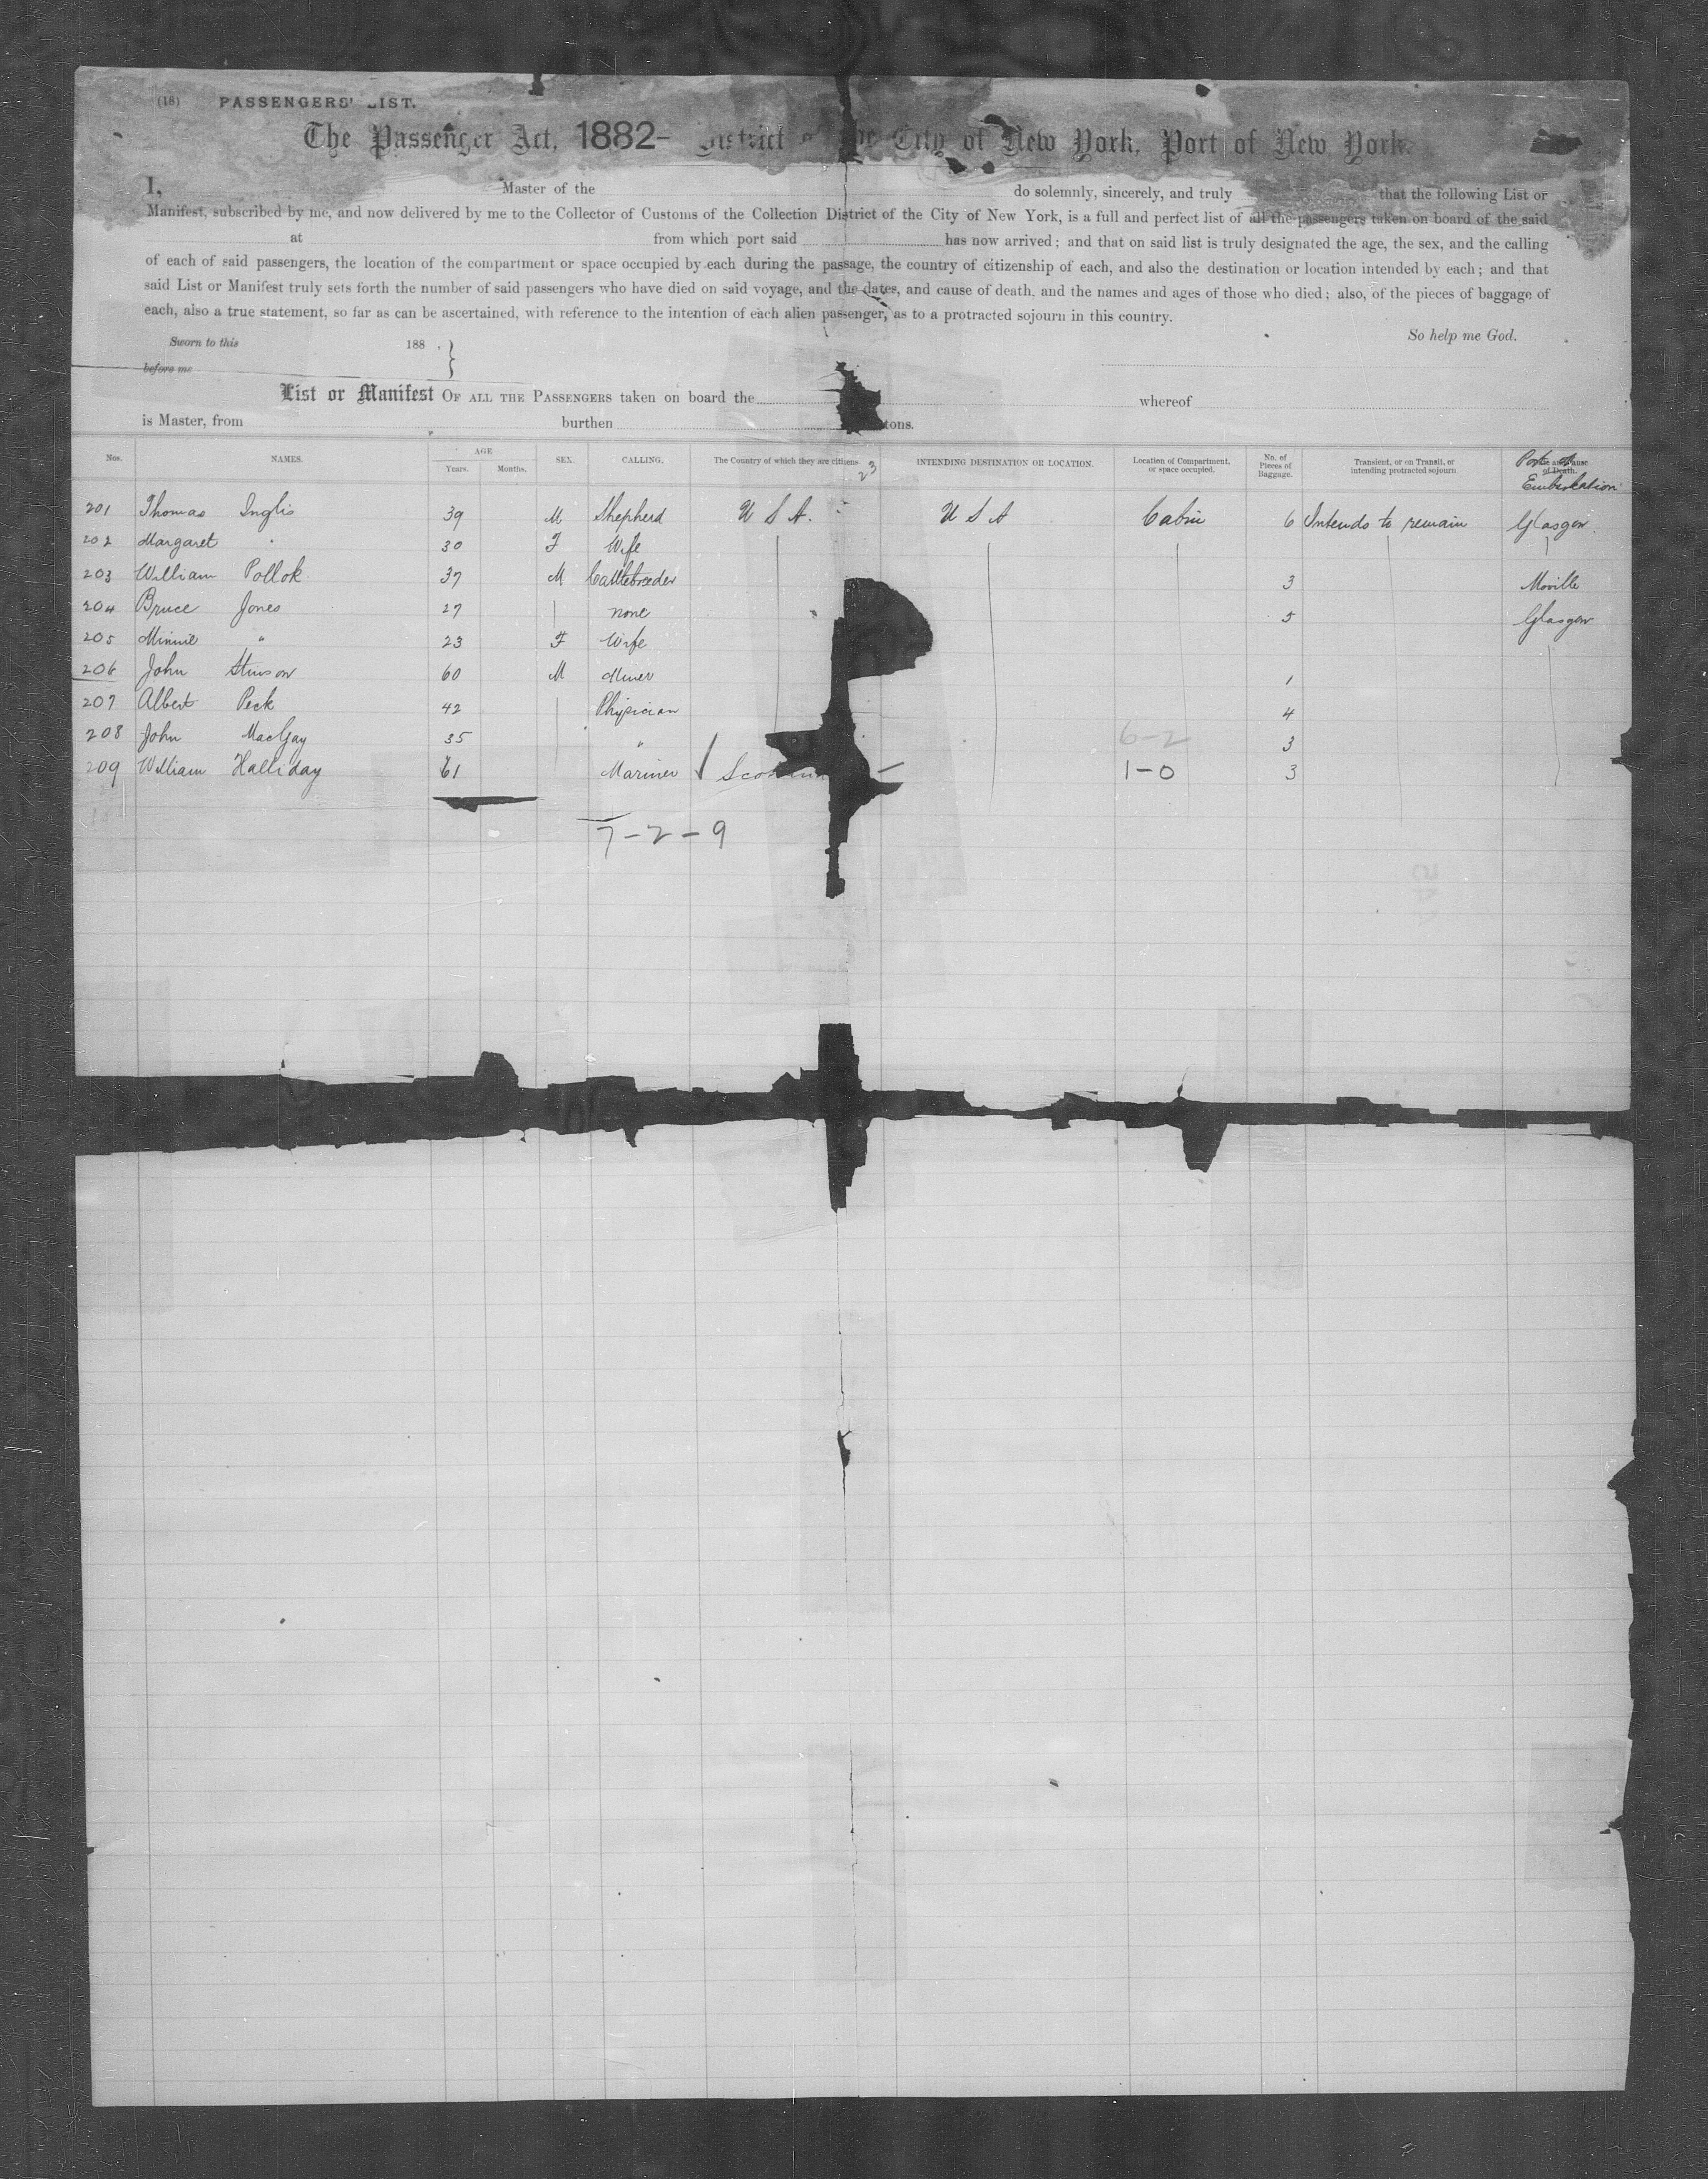 (18) PASSENGERS' LIST.
The Passenger Act, 1882- District of the City of New York, Port of New York.
I, Master of the do solemnly, sincerely, and truly that the following List or
Manifest, subscribed by me, and now delivered by me to the Collector of Customs of the Collection District of the City of New York, is a full and perfect list of all the passengers taken on board of the said
at from which port said has now arrived; and that on said list is truly designated the age, the sex, and the calling
of each of said passengers, the location of the compartment or space occupied by each during the passage, the country of citizenship of each, and also the destination or location intended by each; and that
said List or Manifest truly sets forth the number of said passengers who have died on said voyage, and the dates, and cause of death, and the names and ages of those who died; also, of the pieces of baggage of
each, also a true statement, so far as can be ascertained, with reference to the intention of each alien passenger, as to a protracted sojourn in this country.
So help me God.
Sworn to this 188 . }
before me
List or Manifest OF ALL THE PASSENGERS taken on board the whereof
is Master, from burthen tons.
Nos. NAMES. AGE Years. Months. SEX. CALLING. The Country of which they are citizens. 23 INTENDING DESTINATION OR LOCATION. Location of Compartment, or space occupied. No. of Pieces of Baggage. Transient, or on Transit, or intending protracted sojourn. Port of Embarkation
201 Thomas Inglis 39 M Shepherd U S A. U S A Cabin 6 Intends to remain Glasgow
202 Margaret " 30 F Wife
203 William Pollok 37 M Cattlebreeder 3 Moville
204 Bruce Jones 27 none 5 Glasgow
205 Minnie " 23 F Wife
206 John Stinson 60 M Miner 1
207 Albert Peck 42 Physician 4
208 John MacGay 35 " 6-2 3
209 William Halliday 61 Mariner / Scotland 1-0 3
7-2-9